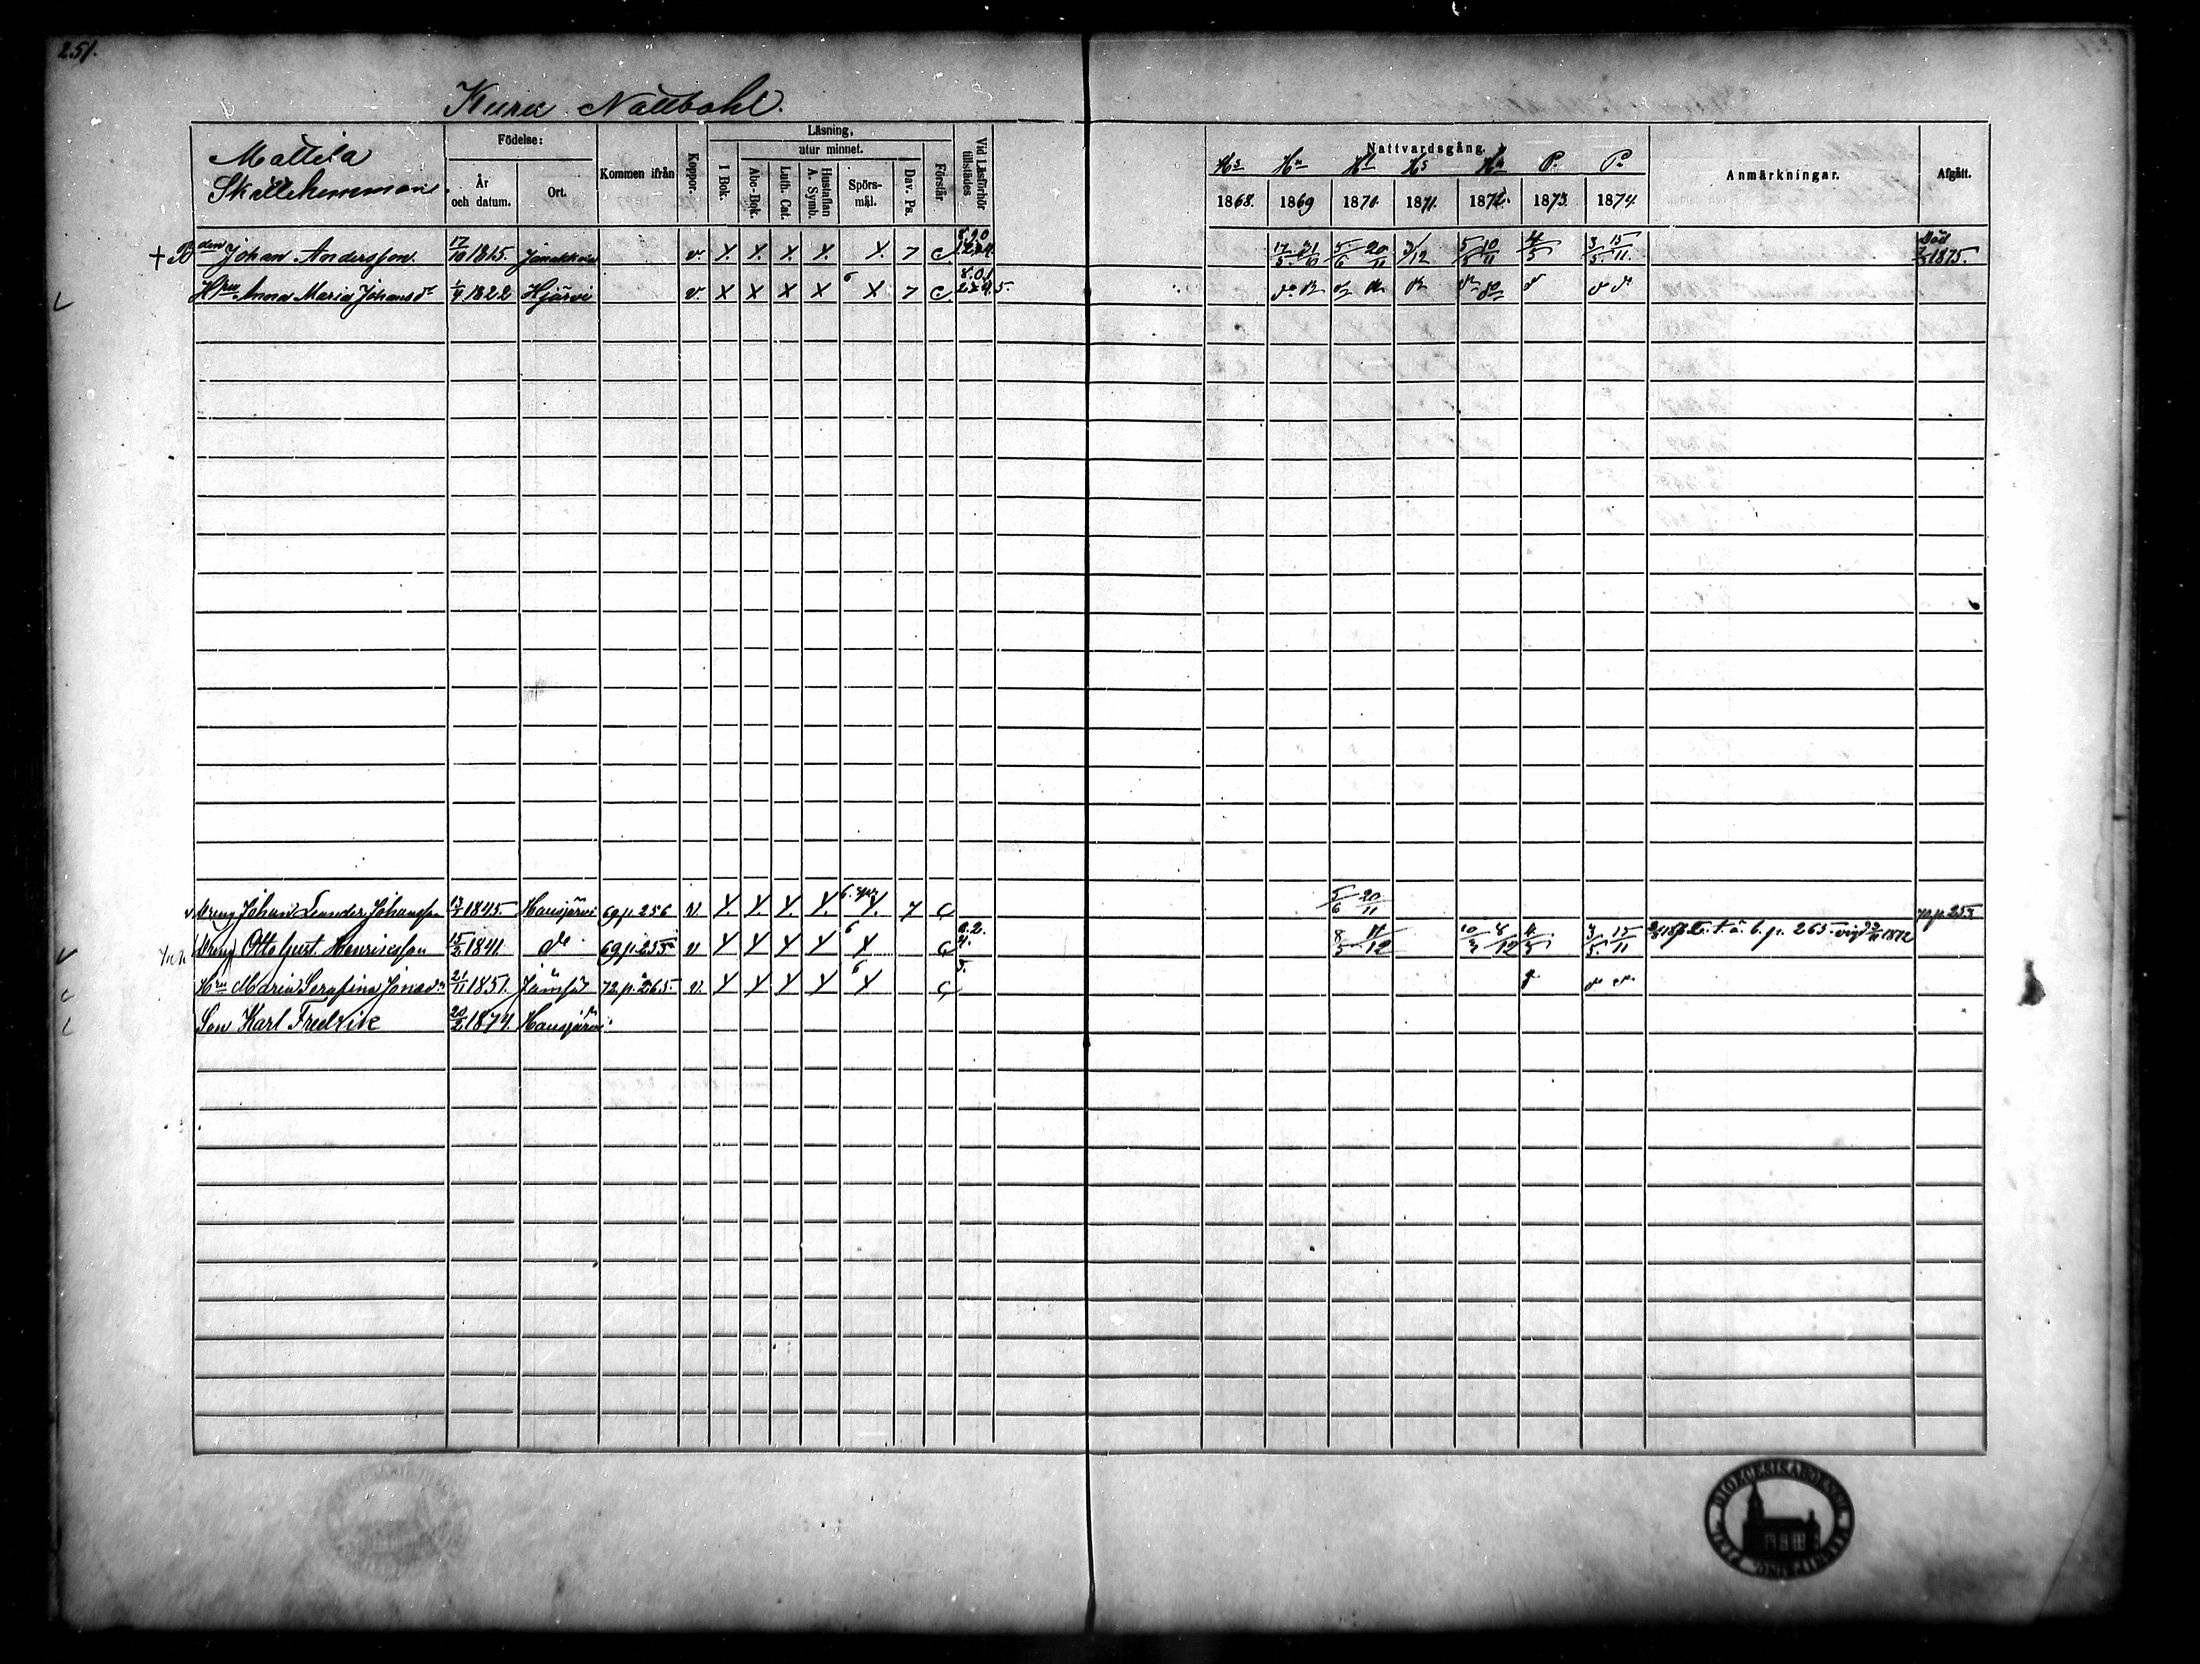 251.
Kuru Nattbohl.
Mattila
Skattehemman.
Födelse:
År och datum.
Ort.
Kommen ifrån
Koppor.
Läsning,
I Bok.
utur minnet.
Abc-Bok.
Luth. Cat.
Hustaflan A. Symb.
Spörs-mål.
Dav. Ps.
Förstår
Vid Läsförhör tillstädes
Nattvardsgång.
1868. 1869 1870. 1871. 1872. 1873. 1874.
Anmärkningar.
Afgått.
+ Bden Johan Andersson 17/10 1815. Janakkala v. X. X. X. X. X. 7 c 17/5 5/6 20/11 3/12 5/5 10/11 4/5 3/5 15/11 Död 1875.
Hru Anna Maria Johansdr 1822 Hjärvi v. X X X X 6 X 7 c
Dreng Johan Leander Johansson 13/ 1845. Hausjärvi 69 p. 256 v. X. X. X. X. 6. X. 7 c 5/6 20/11 70 p. 253
Dreng Otto Gust. Henricsson 15/2 1841 do 69 p. 255 v X X X X 6 X c 8/5 11/12 10/3 8/12 4/5 3/5 15/11 p. 265 vigd 1872
Hru Maria Serafina Jonasdr 21/11 1851. Jämsä 72 p. 265 v. X X X X 6 X c
Son Karl Fredrik 20/2 1874. Hausjärvi
DIOECESIS ABOENSIS